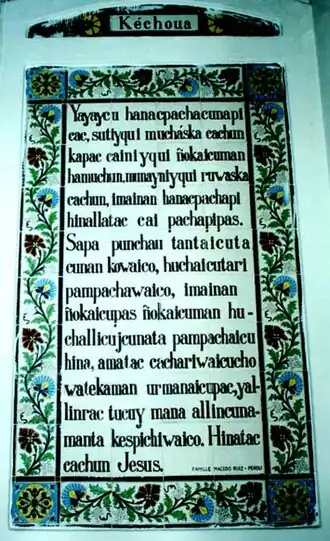 Kéchoua
Yayaycu hanacpachacunapi
cac, sutiyqui mucháska cachun
kapac cainiyqui ñokaicuman
hamuchun, munayniyqui ruwaska
cachun, imainan hanacpachapi
hinallatac cai pachapipas.
Sapa punchau tantaicuta
cunan kowaico, huchaicutari
pampachawaico, imainan
ñokaicupas ñokaicuman hu-
challicujcunata pampachaicu
hina, amatac cachariwaicucho
watekaman urmanaicupac, yal-
linrac tucuy mana allincuna-
manta kespichiwaico. Hinatac
cachun Jesus.
FAMILLE MACEDO RUIZ - PEROU